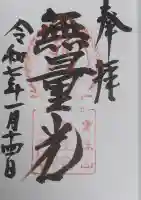 奉拝
無量光
令和七年一月十四日